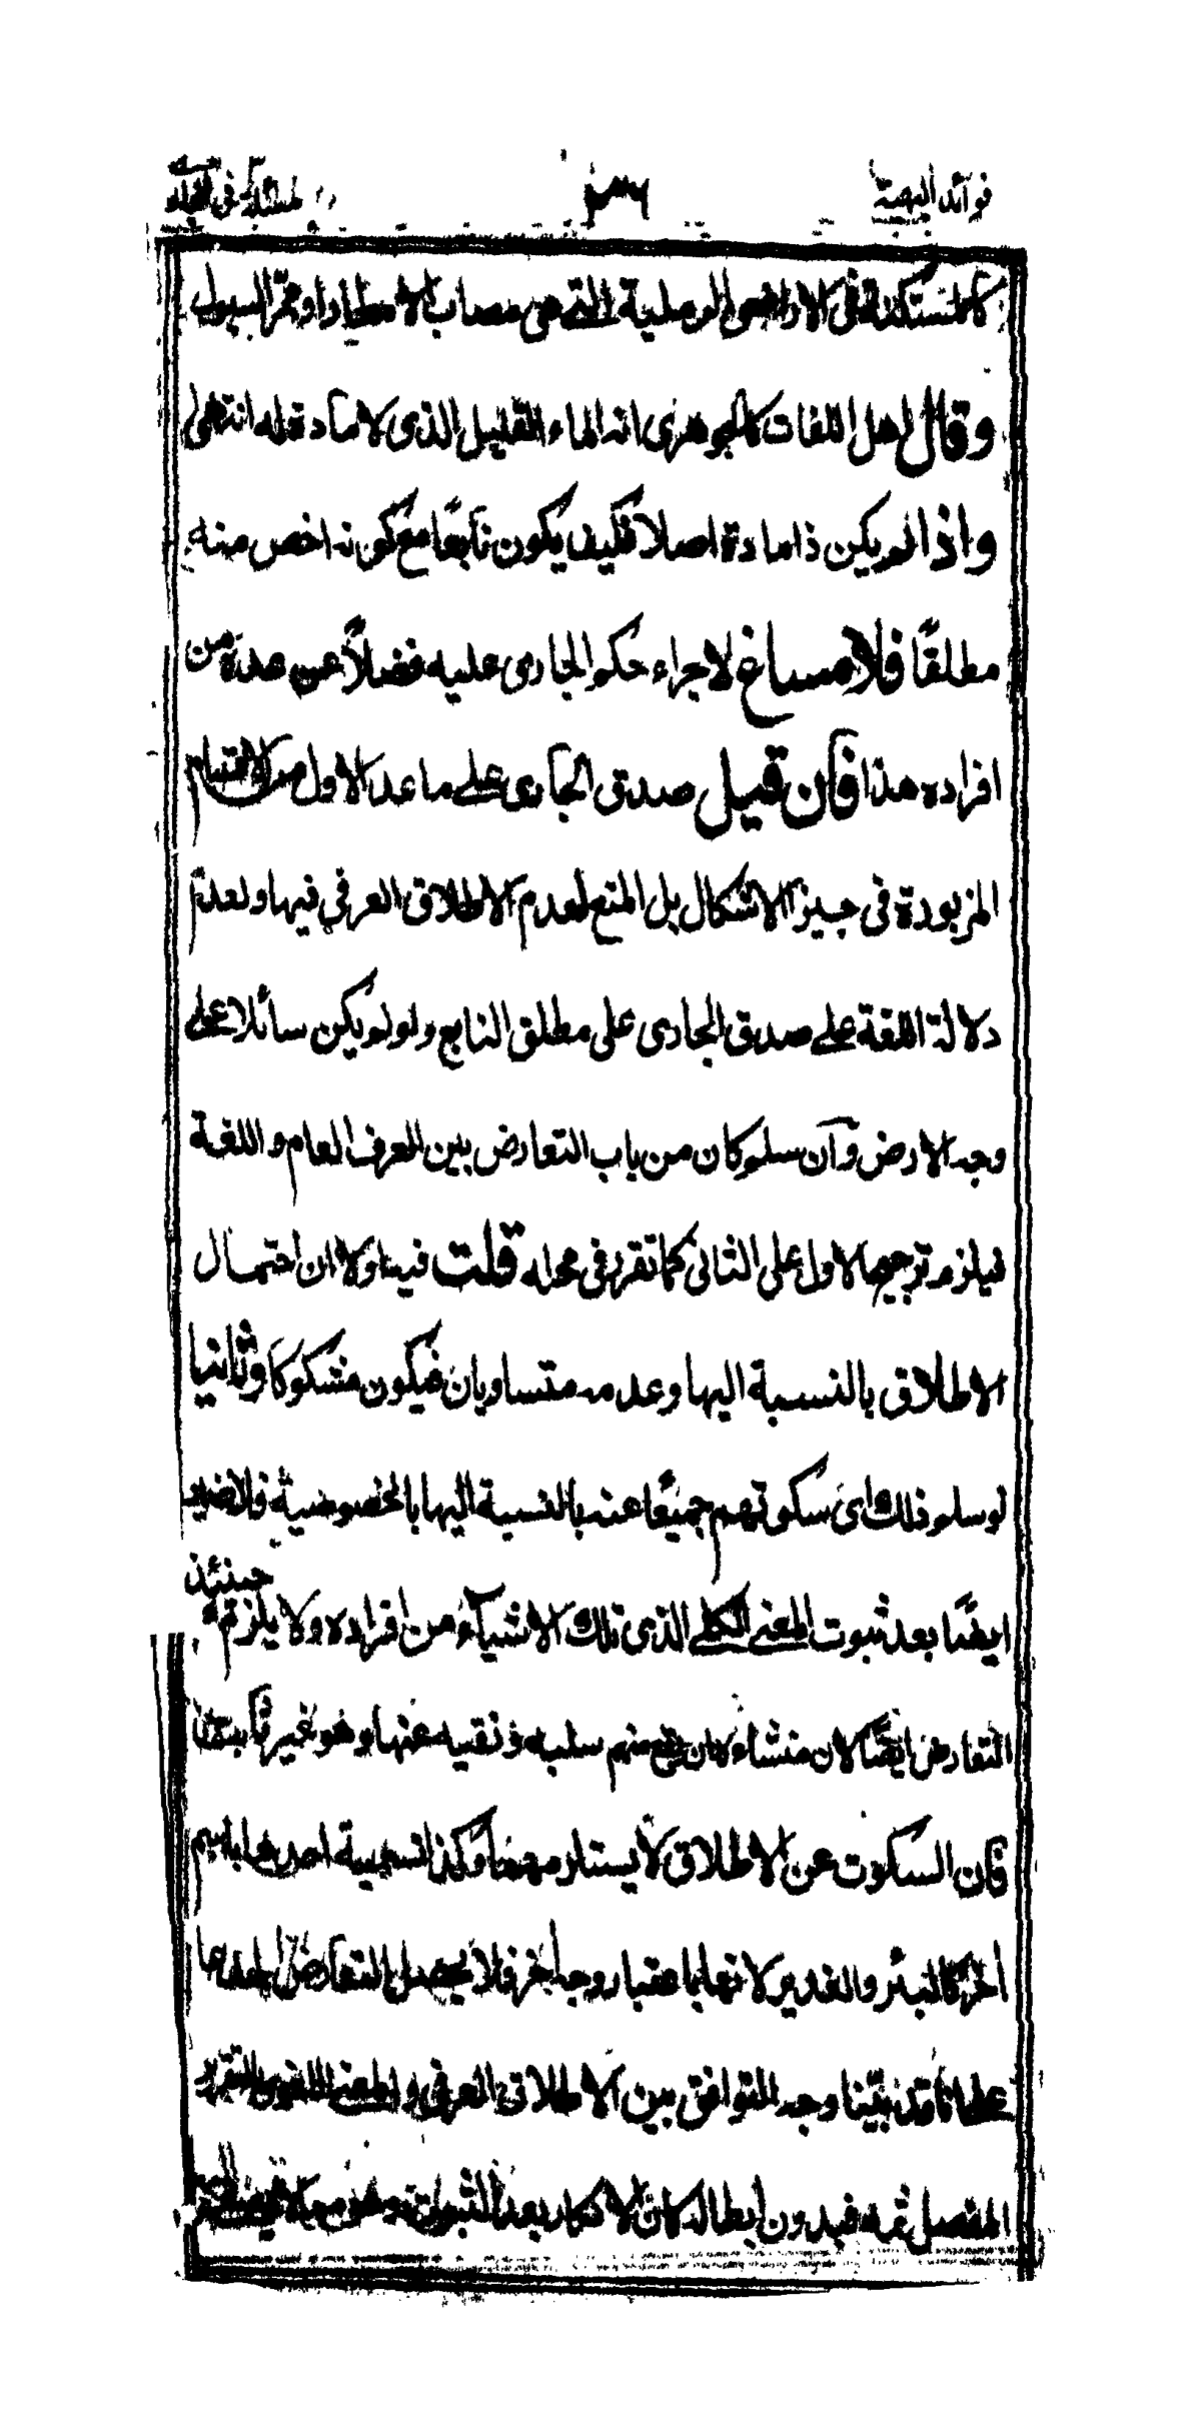 فوائد البهية ٣٦ لمسئلة في الماء
كالمستكنة في الاراضي الرملية التي هي مصاب الامطار او ممر السيول
وقال اهل اللغات كالجوهري انه الماء القليل الذي لا مادة له انتهى
واذا لم يكن ذا مادة اصلا فكيف يكون نابعًا مع كونه اخص منه
مطلقًا فلا مساغ لاجراء حكم الجاري عليه فضلاً عن عده من
افراده هذا فان قيل صدق الجاري على ما عدا الاول من الاقسام
المزبورة في حيز الاشكال بل المنع لعدم الاطلاق العرفي فيها ولعدم
دلالة اللغة على صدق الجاري على مطلق النابع ولو لم يكن سائلا على
وجه الارض وان سلم كان من باب التعارض بين العرف العام واللغة
فيلزم ترجيح الاول على الثاني كما تقرر في محله قلت فيه اولا ان احتمال
الاطلاق بالنسبة اليها وعدمه متساويان فيكون مشكوكا وثانيا
لو سلم ذلك اي سكوتهم جميعًا عنه بالنسبة اليها بالخصوصية فلا ضير
حينئذ
ايضًا بعد ثبوت المعنى الكلي الذي تلك الاشياء من افراده ولا يلزم
التعارض ايضًا لان منشاءه ان يقع منهم سلبه ونفيه عنها وهو غير ثابت
فان السكوت عن الاطلاق لا يستلزمهما وكذا تسمية احدها باسم
اخر كالبئر والغدير لانها باعتبار وجه اخر فلا يحصل التعارض
على انا قد بيّنا وجه التوافق بين الاطلاق العرفي والمعنى اللغوي
المفصل ثمه فبدون ابطاله كان الانكار بعد الثبوت